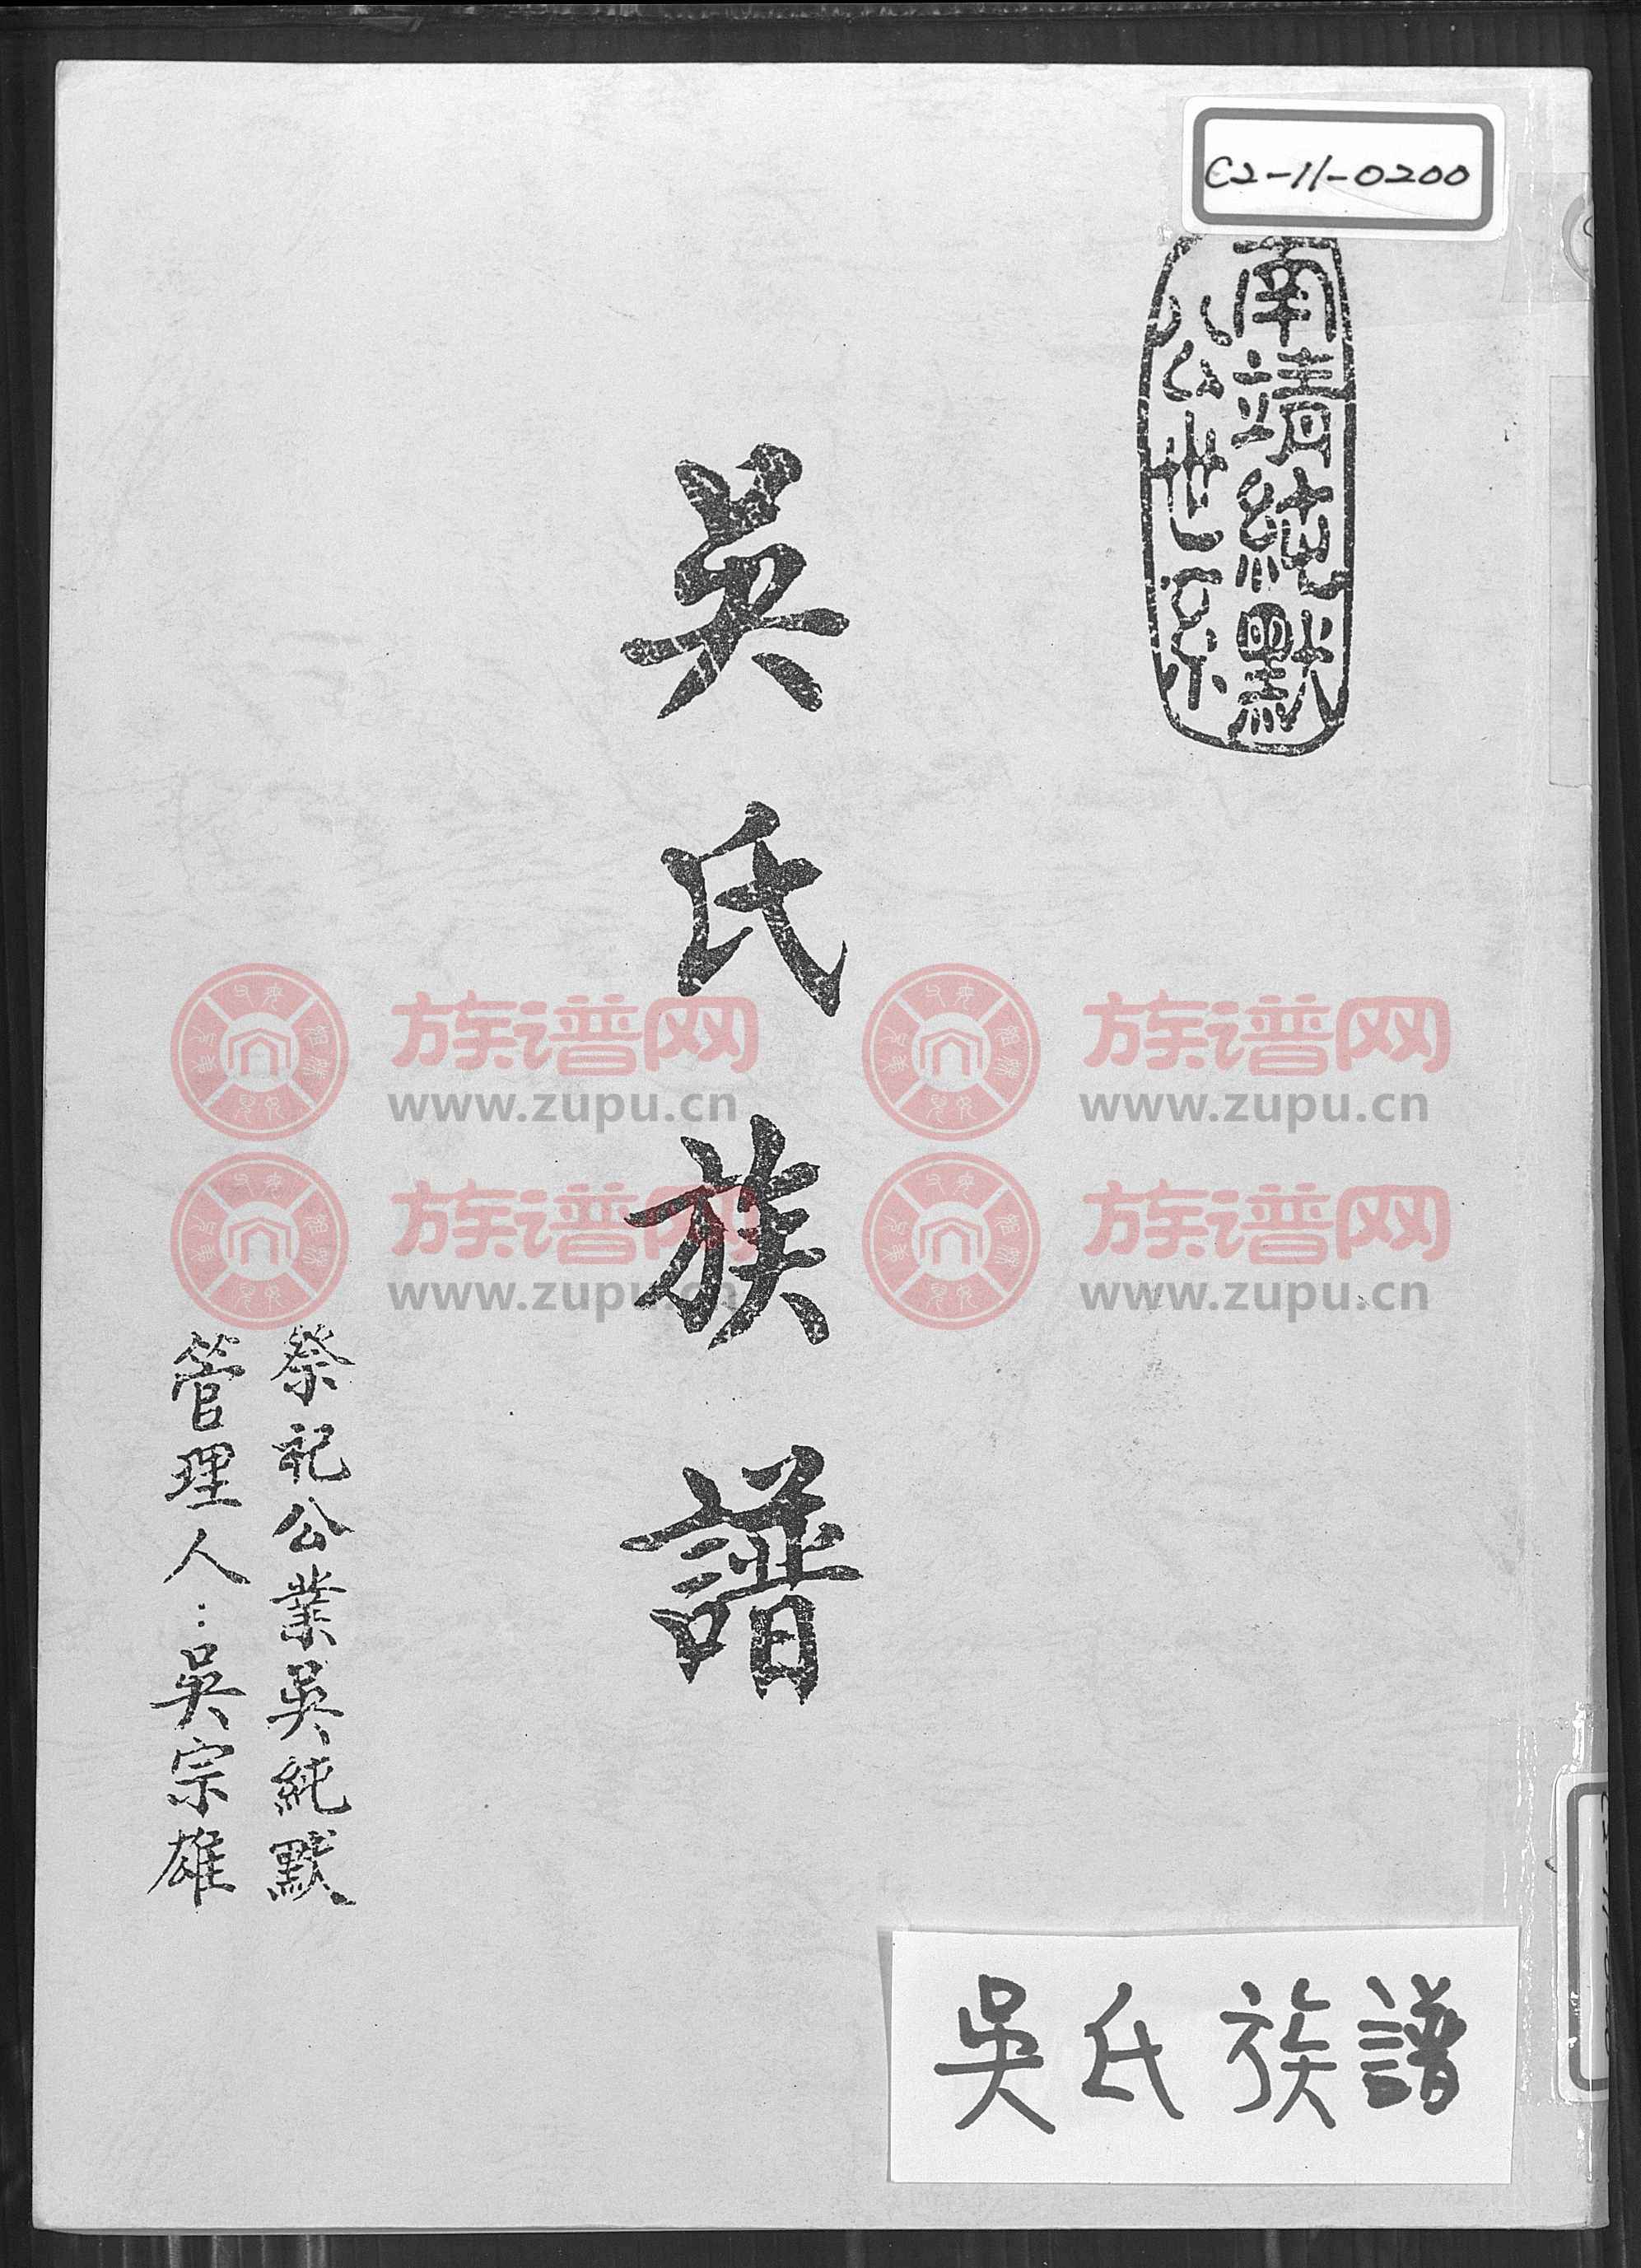 C2-11-0200
南靖純默
公世系
吳氏族譜
祭祀公業吳純默
管理人：吳宗雄
吳氏族譜
族谱网
www.zupu.cn
族谱网
www.zupu.cn
族谱网
www.zupu.cn
族谱网
www.zupu.cn